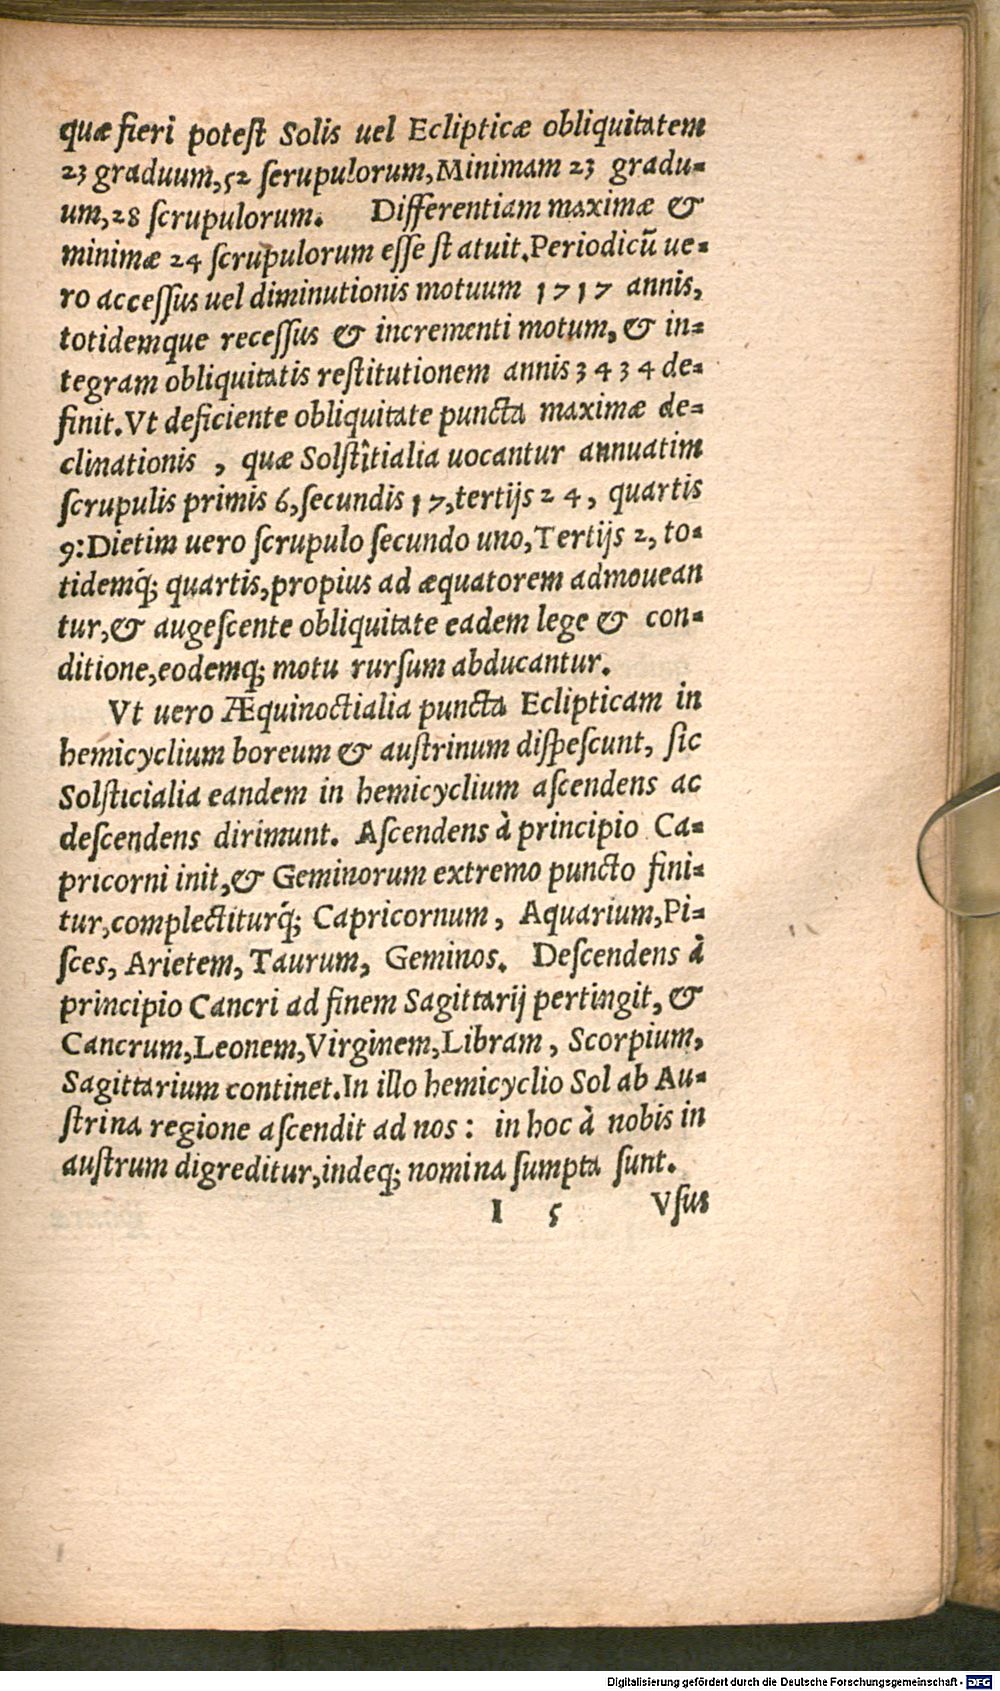 quæ fieri poteſt Solis uel Eclipticæ obliquitatem
23 graduum,52 ſerupulorum,Minimam 23 gradu-
um,28 ſcrupulorum. Differentiam maximæ &
minimæ 24 ſcrupulorum eſſe ſt atuit.Periodicũ ue-
ro acceſſus uel diminutionis motuum 1717 annis,
totidemque receſſus & incrementi motum, & in-
tegram obliquitatis reſtitutionem annis 3434 de-
finit.Vt deficiente obliquitate puncta maximæ de-
clinationis , quæ Solſtîtialia uocantur annuatim
ſcrupulis primis 6,ſecundis 17,tertijs 24, quartis
9:Dietim uero ſcrupulo ſecundo uno,Tertijs 2, to-
tidemq́; quartis,propius ad æquatorem admouean
tur,& augeſcente obliquitate eadem lege & con-
ditione,eodemq; motu rurſum abducantur.
Vt uero Æquinoctialia puncta Eclipticam in
hemicyclium boreum & auſtrinum diſpeſcunt, ſic
Solſticialia eandem in hemicyclium aſcendens ac
deſcendens dirimunt. Aſcendens à principio Ca-
pricorni init,& Geminorum extremo puncto fini-
tur,complectiturq́; Capricornum, Aquarium,Pi-
ſces, Arietem, Taurum, Geminos. Deſcendens à
principio Cancri ad finem Sagittarij pertingit, &
Cancrum,Leonem,Virginem,Libram, Scorpium,
Sagittarium continet.In illo hemicyclio Sol ab Au-
ſtrina regione aſcendit ad nos: in hoc à nobis in
auſtrum digreditur,indeq; nomina ſumpta ſunt.
I 5 Vſus
Digitalisierung gefördert durch die Deutsche Forschungsgemeinschaft - DFG